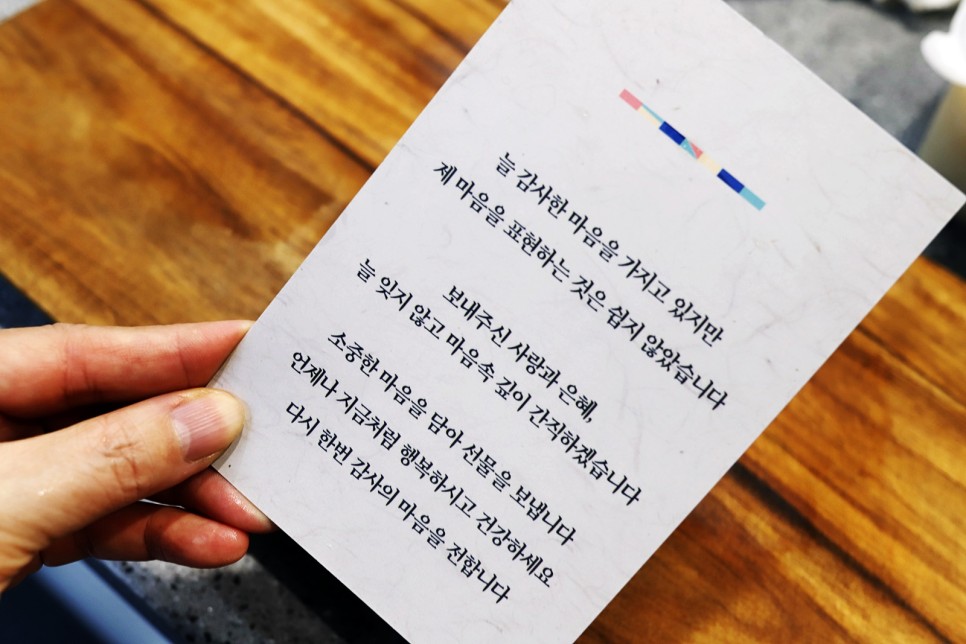 늘 감사한 마음을 가지고 있지만
제 마음을 표현하는 것은 쉽지 않았습니다
보내주신 사랑과 은혜,
늘 잊지 않고 마음속 깊이 간직하겠습니다
소중한 마음을 담아 선물을 보냅니다
언제나 지금처럼 행복하시고 건강하세요
다시 한번 감사의 마음을 전합니다